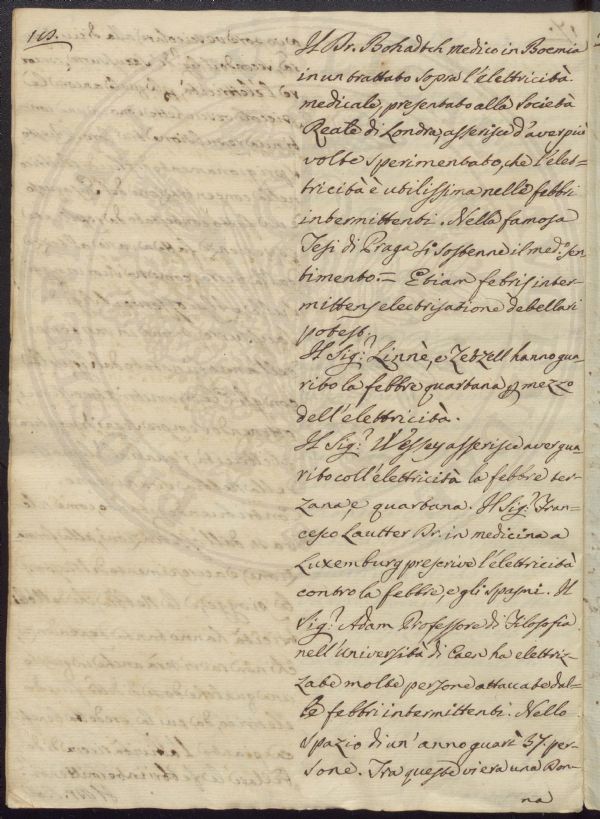 118.
Il Dr. Bohadtch medico in Boemia
in un trattato sopra l'elettricità
medicale, presentato alla Società
Reale di Londra, asserisce d'aver più
volte sperimentato, che l'elet=
tricità è utilissima nelle febbri
intermittenti. Nella famosa
Tesi di Praga si sostenne il med.o sen
timento. = Etiam febris inter=
mittens electrisatione debellari
potest.
Il Sig.r Linnè, e Zetzell hanno gua
rito la febbre quartana p mezzo
dell'elettricità.
Il Sig.r Wessey asserisce aver gua
rito coll'elettricità la febbre ter=
zana, e quartana. Il Sig.r Fran=
cesco Lautter Dr. in medicina a
Luxemburg prescrive l'elettricità
contro la febbre, e gli spasmi. Il
Sig.r Adam Professore di Filosofia
nell'Università di Caen ha elettriz=
zate molte persone attaccate dal=
le febbri intermittenti. Nello
spazio di un'anno guarì 37. per=
sone. Tra queste vi era una Don=
na